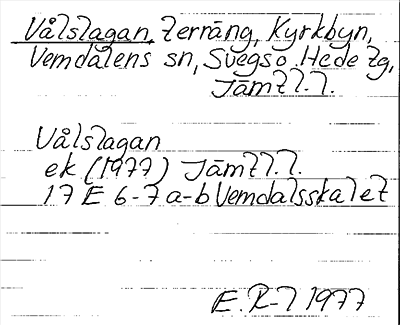 Vålslagan, terräng, Kyrkbyn,
Vemdalens sn, Svegs o. Hede tg,
Jämtl.l.
Vålslagan
ek (1977) Jämtl.l.
17 E 6-7 a-b Vemdalsskalet
E.R-l 1977